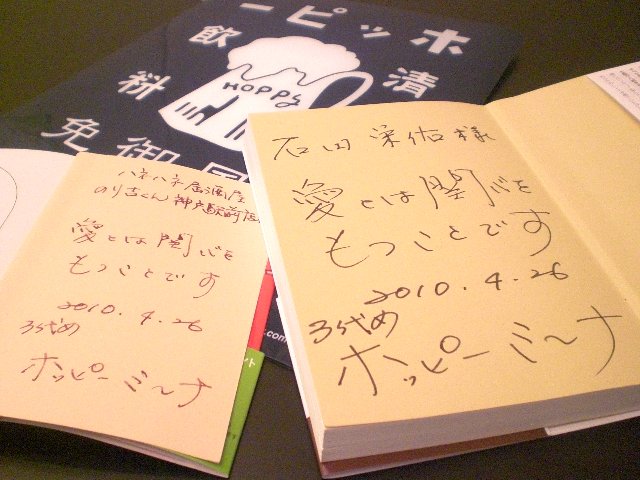 ホッピー
清
飲
料
HOPPY
御
免
.com
のり吉くん 神戸駅前店
愛とは関心を
もつことです
2010.4.26
3代め
ホッピーミーナ
石田 栄佑様
愛とは関心を
もつことです
2010.4.26
3代め
ホッピーミーナ